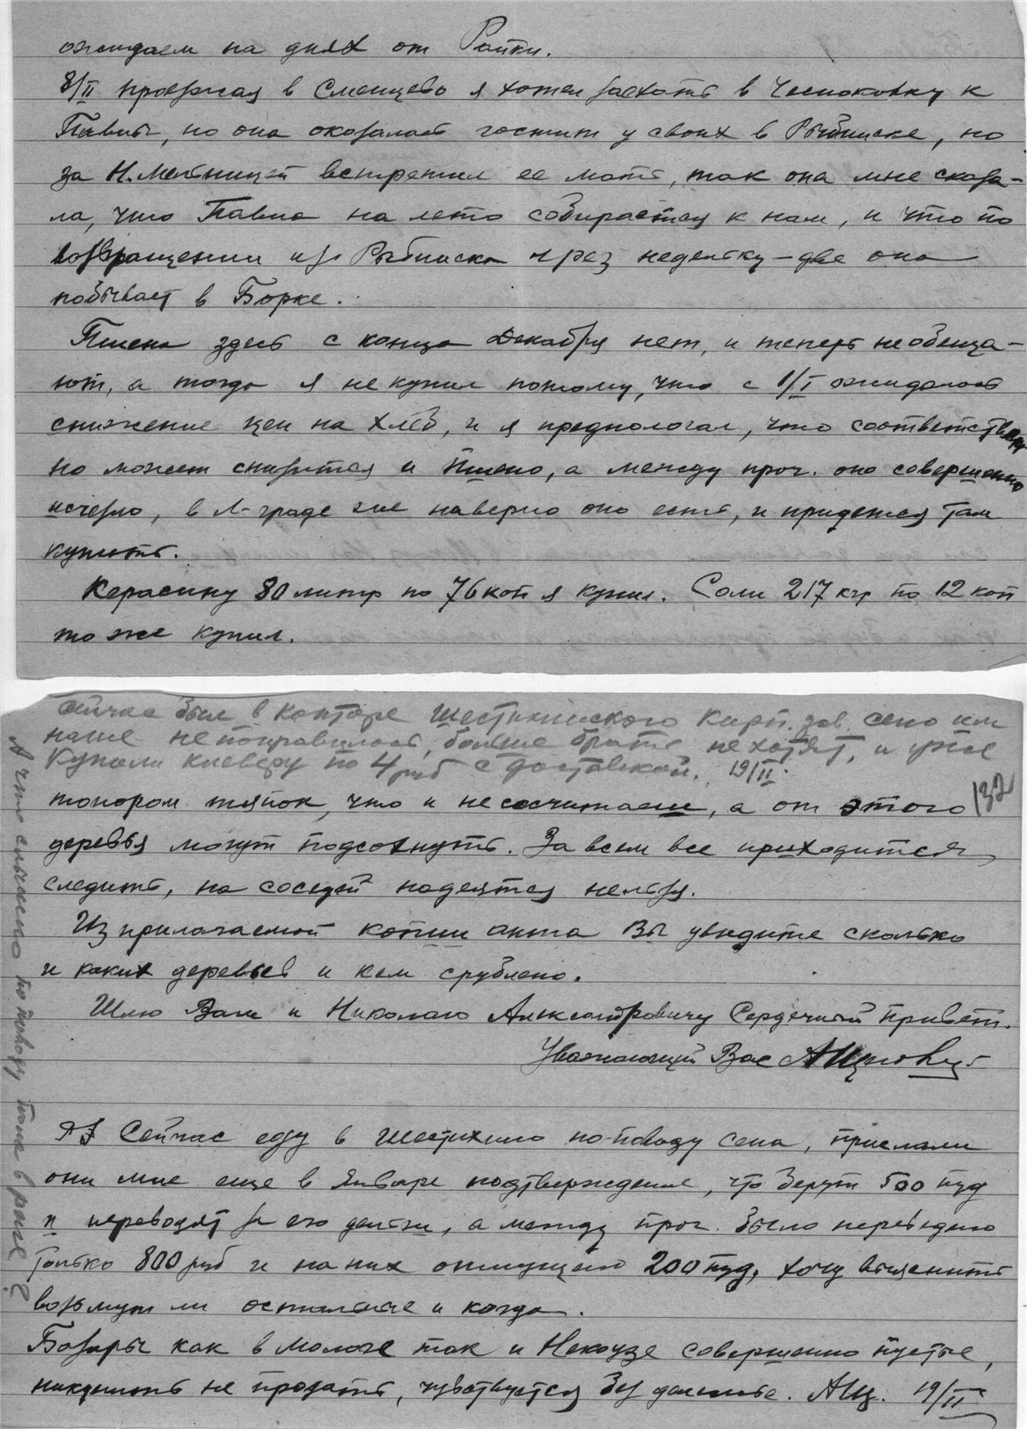 ожидаем на днях от Райки.
8/II проезжая в Сменцево я хотел заехать в Чесноковку к
Павле, но она оказалась гостит у своих в Рыбинске, но
за Н. Мельницей встретил ее мать, так она мне сказа-
ла, что Павла на лето собирается к нам, и что по
возвращении из Рыбинска чрез недельку-две она
побывает в Борке.
Пшена здесь с конца Декабря нет, и теперь не обеща-
ют, а тогда я не купил потому, что с 1/I ожидалось
снижение цен на хлеб, и я предпологал, что соответствен
но может снизится и пшено, а между проч. оно совершенно
исчезло, в Л-граде же наверно оно есть, и придется там
купить.
Керасину 80 литр по 76 коп я купил. Соли 217 кгр по 12 коп
то же купил.
Сейчас был в конторе Шестихинского кирп. зав. сено им
наше не понравилось, больше брать не хотят, и уже
купили клеверу по 4 руб с доставкой. 19/II.
132
топором тяпок, что и не сосчитаеш, а от этого
деревья могут подсохнуть. За всем все приходится
следить, на соседей надеятся нельзя.
Из прилагаемой копии акта Вы увидите сколько
и каких деревьев и кем срублено.
Шлю Вам и Николаю Александровичу Сердечный привет.
Уважающий Вас
PS Сейчас еду в Шестихино по-поводу сена, прислали
они мне еще в Январе подтверждение, что берут 500 пуд
и переводят за его деньги, а между проч. было переведено
только 800 руб и на них отпущено 200 пуд, хочу выяснить
возьмут ли остальное и когда.
Базары как в Мологе так и Некоузе совершенно пустые,
ни купить не продать, чувствуется без денежье. АЦ. 19/II
А что слышно по поводу